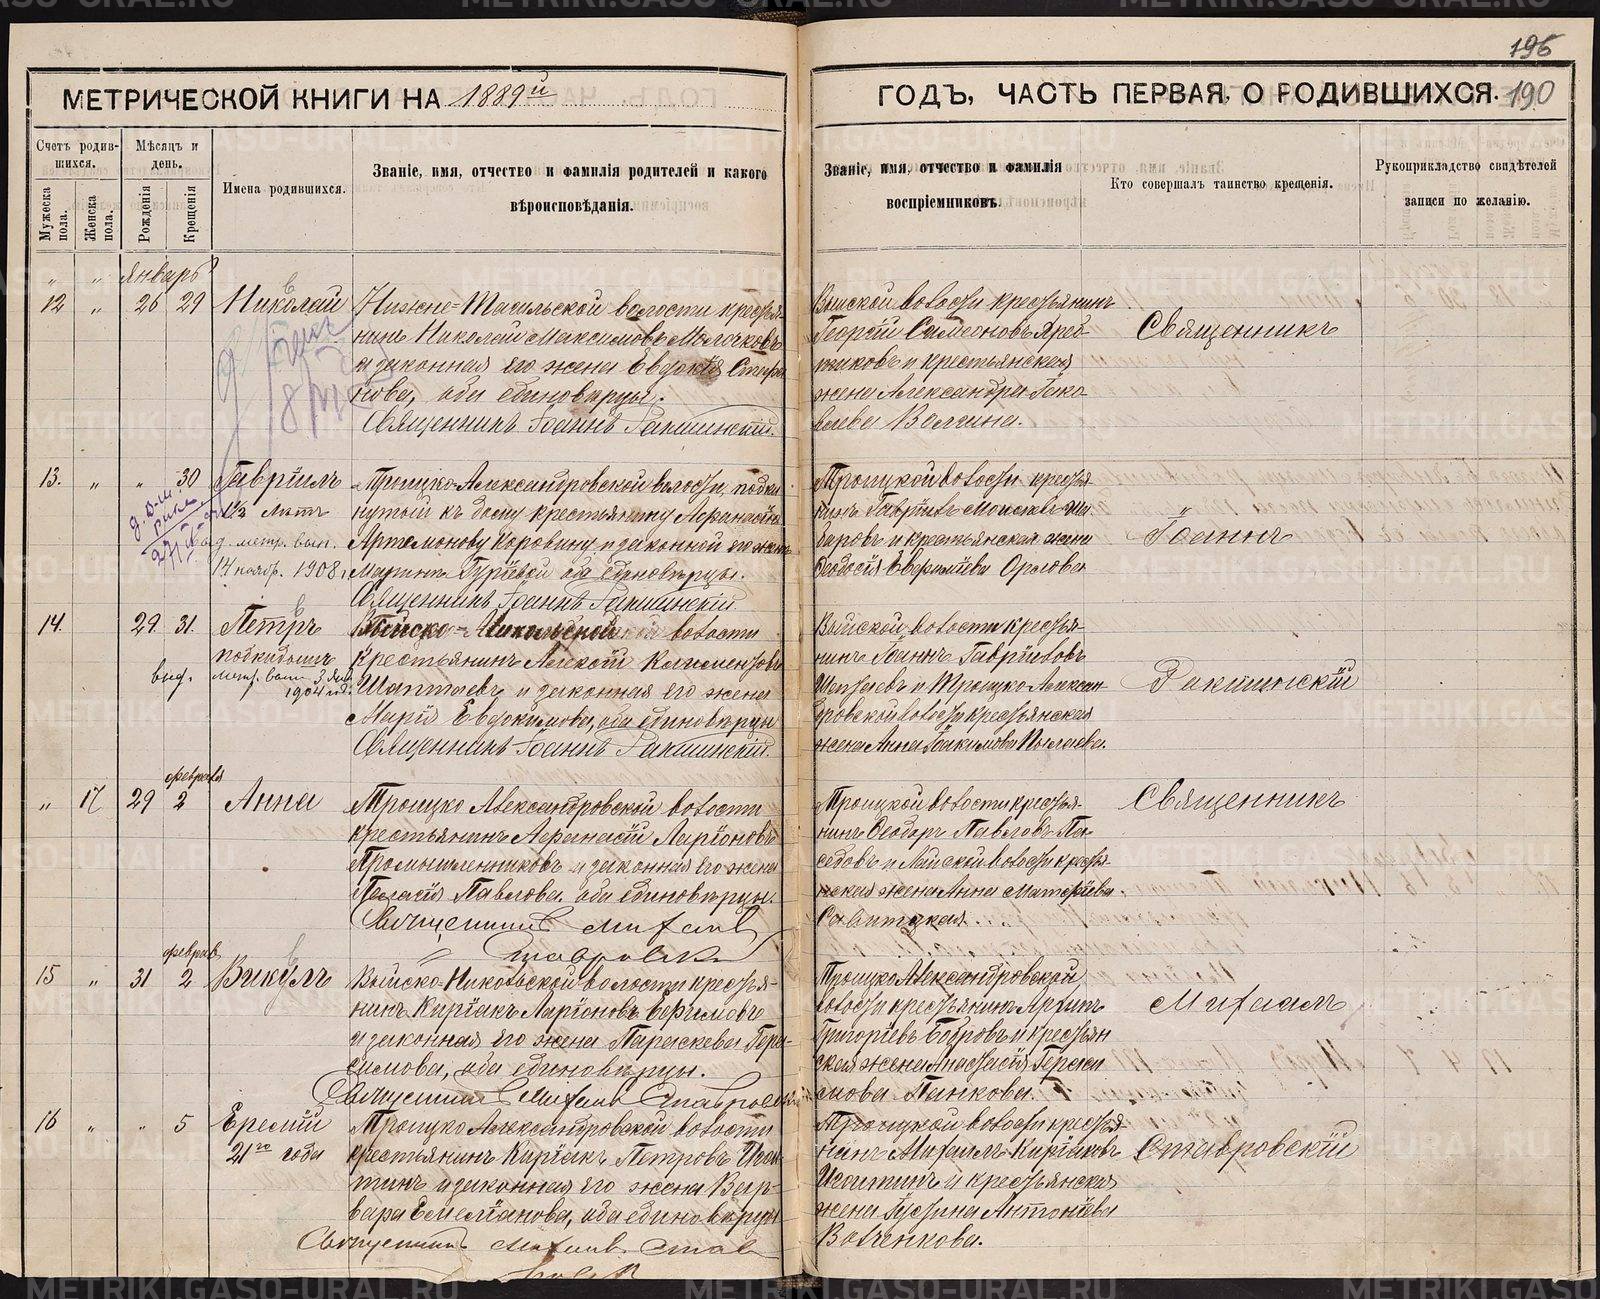 195
МЕТРИЧЕСКОЙ КНИГИ НА 1889й
ГОДЪ, ЧАСТЬ ПЕРВАЯ, О РОДИВШИХСЯ. 190
Счетъ родив-
шихся.
Мужеска пола.
Женска пола.
Мѣсяцъ и
день.
Рожденія
Крещенія
Имена родившихся.
Званіе, имя, отчество и фамилія родителей и какого
вѣроисповѣданія.
Званіе, имя, отчество и фамилія
воспріемниковъ.
Кто совершалъ таинство крещенія.
Рукоприкладство свидѣтелей
записи по желанію.
" " Январь
12 " 26 29 Николай
Нижне-Тагильской волости кресть-
янинъ Николай Максимовъ
и законная его жена Евдокія Стефа
нова, оба единовѣрцы.
Священникъ Іоаннъ Ракшинскій.
Выйской волости крестьянинъ
Георгій Самсоновъ Яреб-
тиковъ и крестьянская
жена Александра Іако-
влева Волгина.
Священникъ
13. " " 30 Гавріилъ
1½ лѣтъ
выд. метр. вып.
14 нояб. 1908
Троицко-Александровской волости, подки
нутый къ дому крестьянину Афанасію
Артемонову Коровину и законной его женѣ
Маринѣ Гурьевой оба единовѣрцы.
Священникъ Іоаннъ Ракшинскій.
Троицкой волости кресть
нинъ Гавріилъ
и крестьянская жена
Феодосія Евфимьева Орлова
Іоаннъ
14. 29 31. Петръ
подкидышъ
выд. метр. вып. 3
1904 год.
Выйско-Никольской волости
Крестьянинъ Алексій Климентовъ
Шаптаевъ и законная его жена
Марія Евдокимова, оба единовѣрцы
Священникъ Іоаннъ Ракшинскій.
Выйской волости кресть-
нинъ Іоаннъ Гавріиловъ
и Троицко-Алексан-
дровской волости крестьянская
жена Анна Іоакимова
Ракшинскій
февраля
" 17 29 2 Анна
Троицко Александровской волости
крестьянинъ Афанасій Ларіоновъ
Промышленниковъ и законная его жена
Пелагія Павлова. оба единовѣрцы.
Священникъ Михаилъ
Ставровскій
Троицкой волости кресть-
нинъ Феодоръ Павловъ Па-
седовъ и Лайской волости кресть-
нская жена Анна Матфіева
Савитская.
Священникъ
феврал
15 " 31 2 Викулъ
Выйско-Никольской волости крестья-
нинъ Киріакъ Ларіоновъ Ефимовъ
и законная его жена Параскева Гера-
симова, оба единовѣрцы.
Священникъ Михаилъ Ставровскій
Троицко Александровской
волости крестьянинъ Архипъ
Григорьевъ Бобровъ и крестьян
ская жена Анастасія Гераси
мова Панкова.
Михаилъ
16 " " 5 Еремій
21го года
Троицко Александровской волости
крестьянинъ Киріакъ Петровъ Иса-
тинъ и законная его жена Вар-
вара Емеліанова, оба единовѣрцы
Священникъ Михаилъ Став
ровскій
Троицкой волости кресть-
нинъ Михаилъ Киріаковъ
и крестьянская
жена Антоніева
Волченкова.
Ставровскій
METRIKI.GASO-URAL.RU